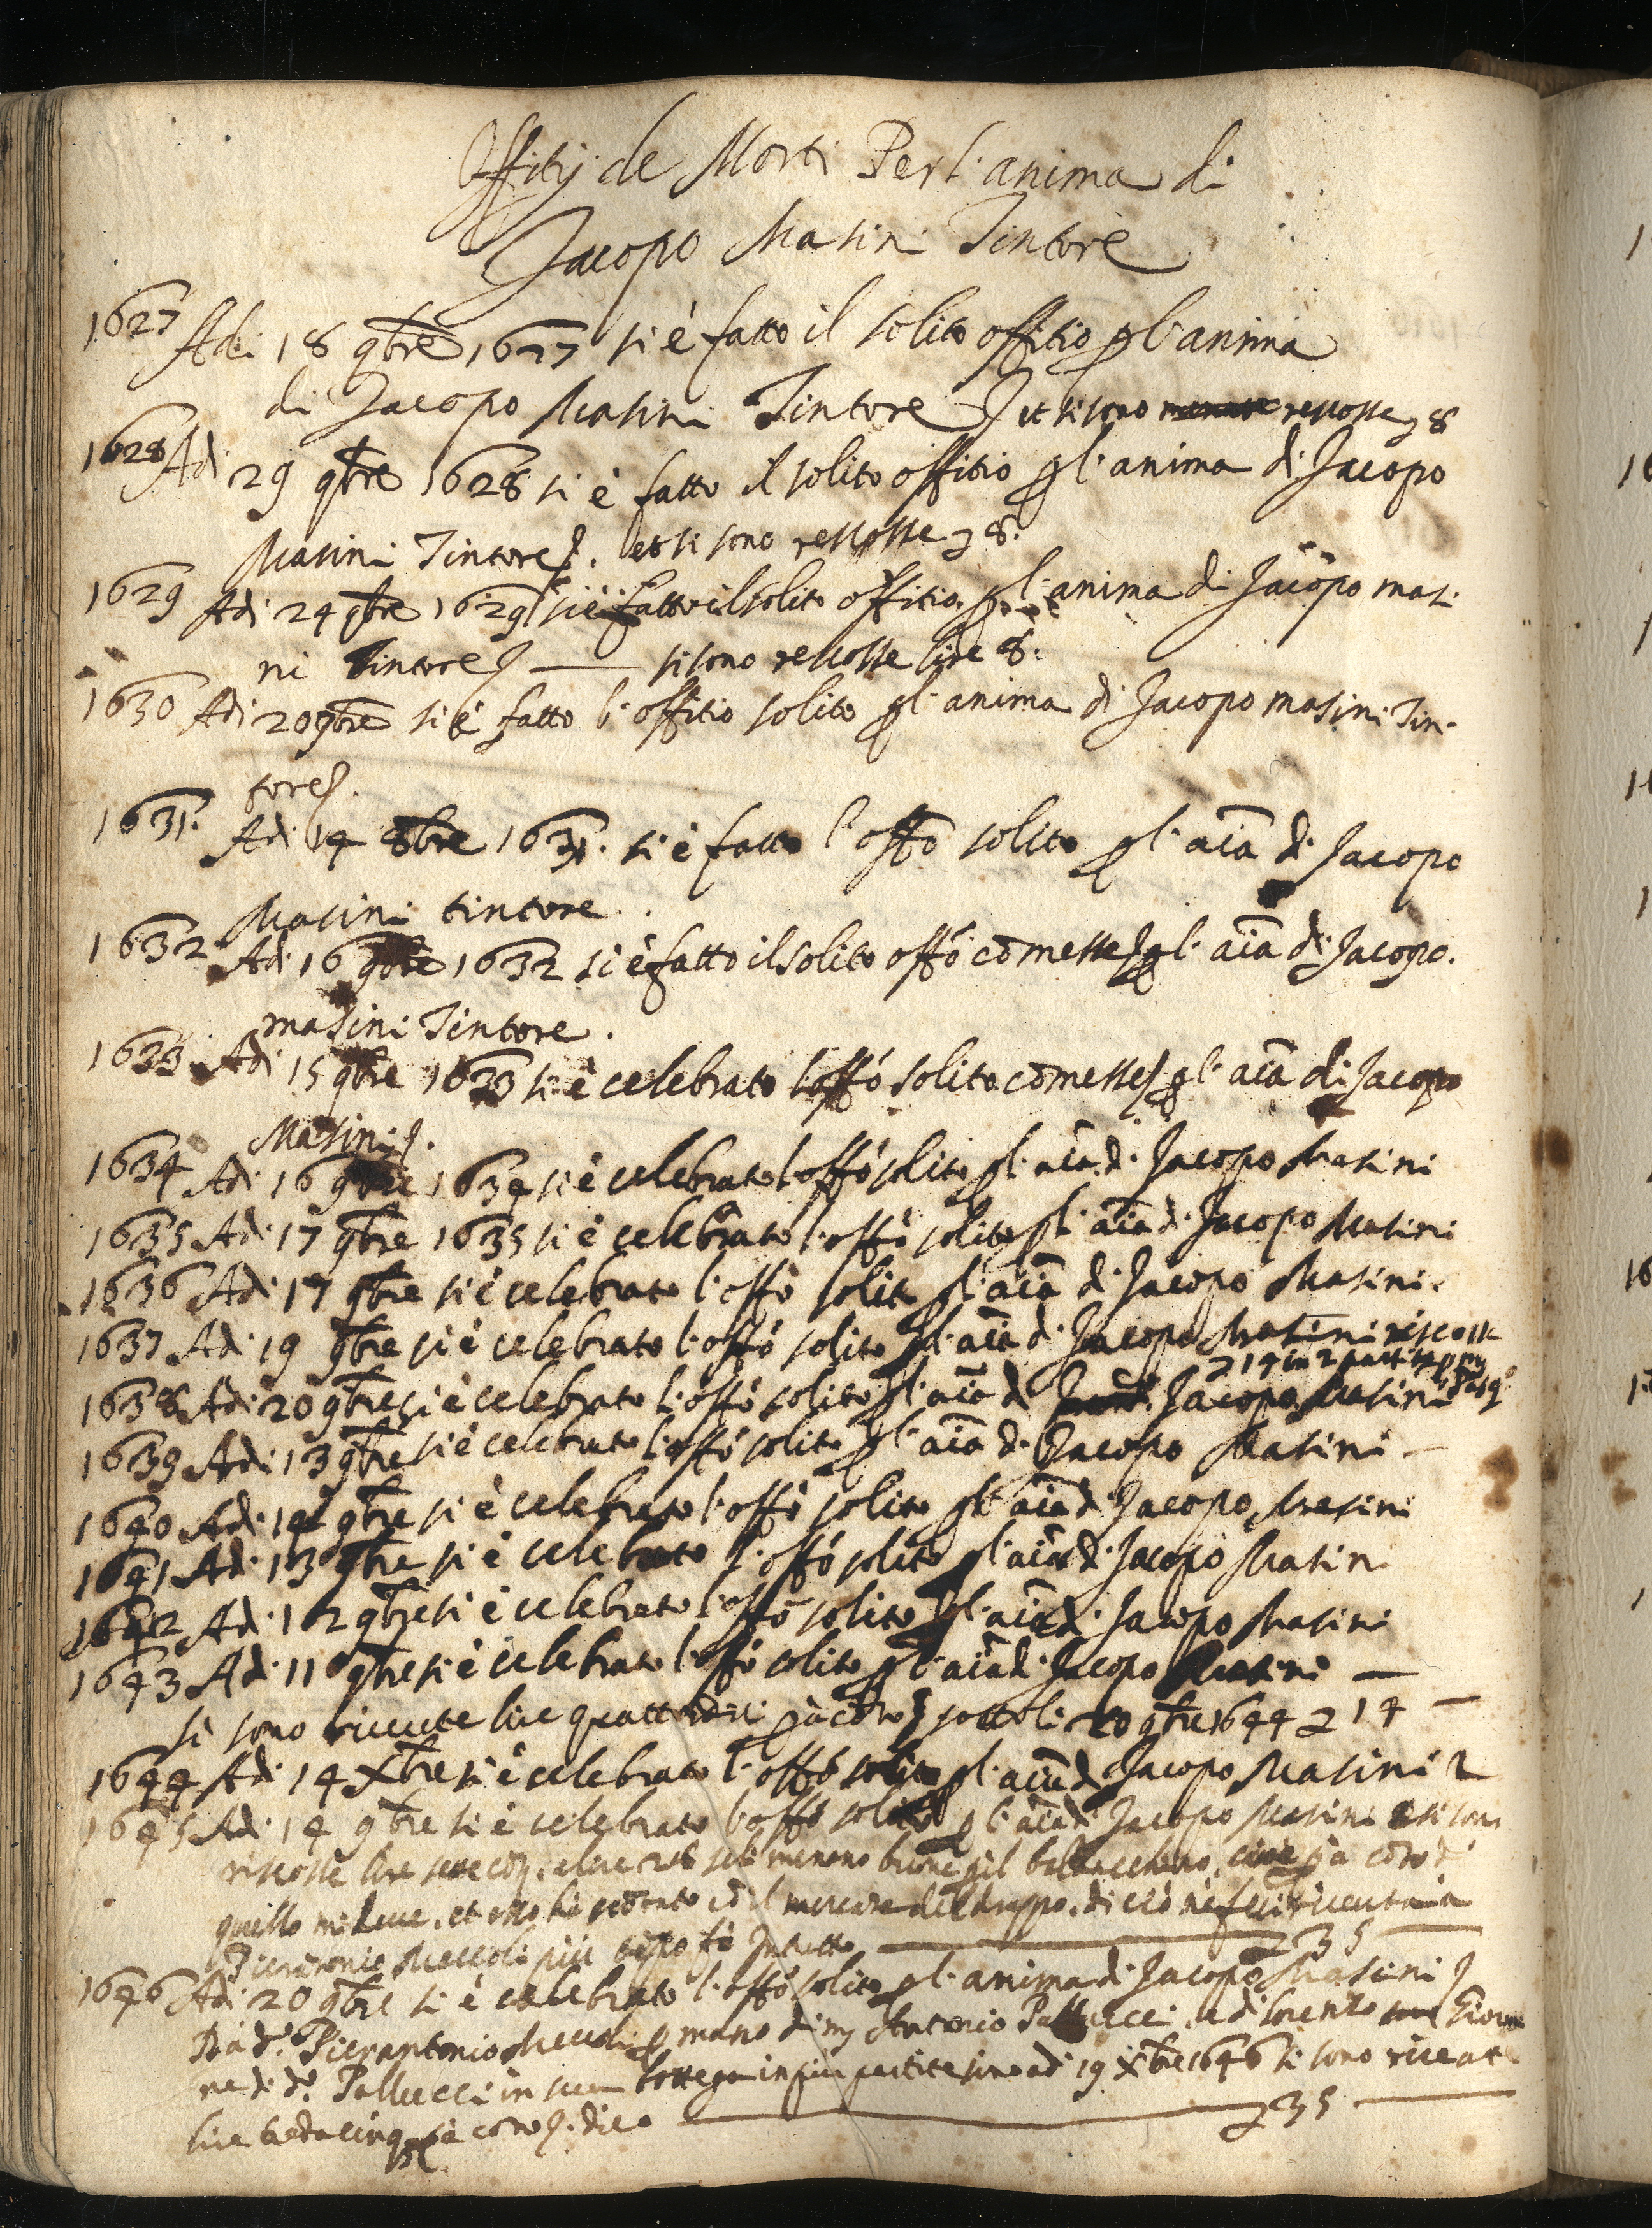 Offitij de Morti Per l'anima di
Jacopo Masini Tintore
1627 Adi 18 9bre 1627 si è fatto il solito offitio p l'anima
di Jacopo Masini Tintore et si sono rescosse 8
1628 Adi 29 9bre 1628 si è fatto il solito offitio p l'anima di Jacopo
Masini Tintore. et si sono rescosse 8.
1629 Adi 24 9bre 1629 si è fatto il solito offitio p l'anima di Jacopo masi
ni Tintore — si sono rescosse lire 8:
1630 Adi 20 9bre si è fatto l'offitio solito p l'anima di Jacopo masini Tin-
tore.
1631. Adi 14 8bre 1631. si è fatto l'offo solito p l'aia di Jacopo
Masini tintore.
1632 Adi 16 9bre 1632 si è fatto il solito offo co messe p l'aia di Jacopo.
masini Tintore.
1633 Adi 15 9bre 1633 si è celebrato l'offo solito co messe p l'aia di Jacopo
Masini.
1634 Adi 16 9bre 1634 si è celebrato l'offo solito p l'aia di Jacopo Masini
1635 Adi 17 9bre 1635 si è celebrato l'offo solito p l'aia di Jacopo Masini
1636 Adi 17 9bre si è celebrato l'offo solito p l'aia di Jacopo Masini.
1637 Adi 19 9bre si è celebrato l'offo solito p l'aia di Jacopo Masini riscosse
14 in 2 partite p
1638 Adi 20 9bre si è celebrato l'offo solito p l'aia di Jacopo Masini
1639 Adi 13 9bre si è celebrato l'offo solito p l'aia di Jacopo Masini —
1640 Adi 14 9bre si è celebrato l'offo solito p l'aia di Jacopo Masini
1641 Adi 13 9bre si è celebrato l'offo solito p l'aia di Jacopo Masin
1642 Adi 12 9bre si è celebrato l'offo solito p l'aia di Jacopo Masini
1643 Adi 11 9bre si è celebrato l'offo solito p l'aia di Jacopo Masini —
si sono riceute lire quattordici p a coto sotto li 20 9bre 1644 14 —
1644 Adi 14 Xbre si è celebrato l'offo solito p l'aia di Jacopo Masini
1645 Adi 14 9bre si è celebrato l'offo solito p l'aia di Jacopo Masini e si sono
riscosse lire sette e lire 28 si menono buone p il baldacchino, cioè p a coto di
quello mi deve, et esso ha scotato co il mercate del drappo, di ciò ne feci riceuta a
Pierantonio Meccoli più tepo fa In tutto — 35 —
1646 Adi 20 9bre si è celebrato l'offo solito p l'anima di Jacopo Masini
Da do. Pierantonio Meccoli p mano di m Antonio Pallucci, e di Lorenzo Giova
ne di do. Pallucci in sua bottega in più partite sino adi 19 Xbre 1646 si sono riceute
lire tretacinq p a coto. dico — 35 —